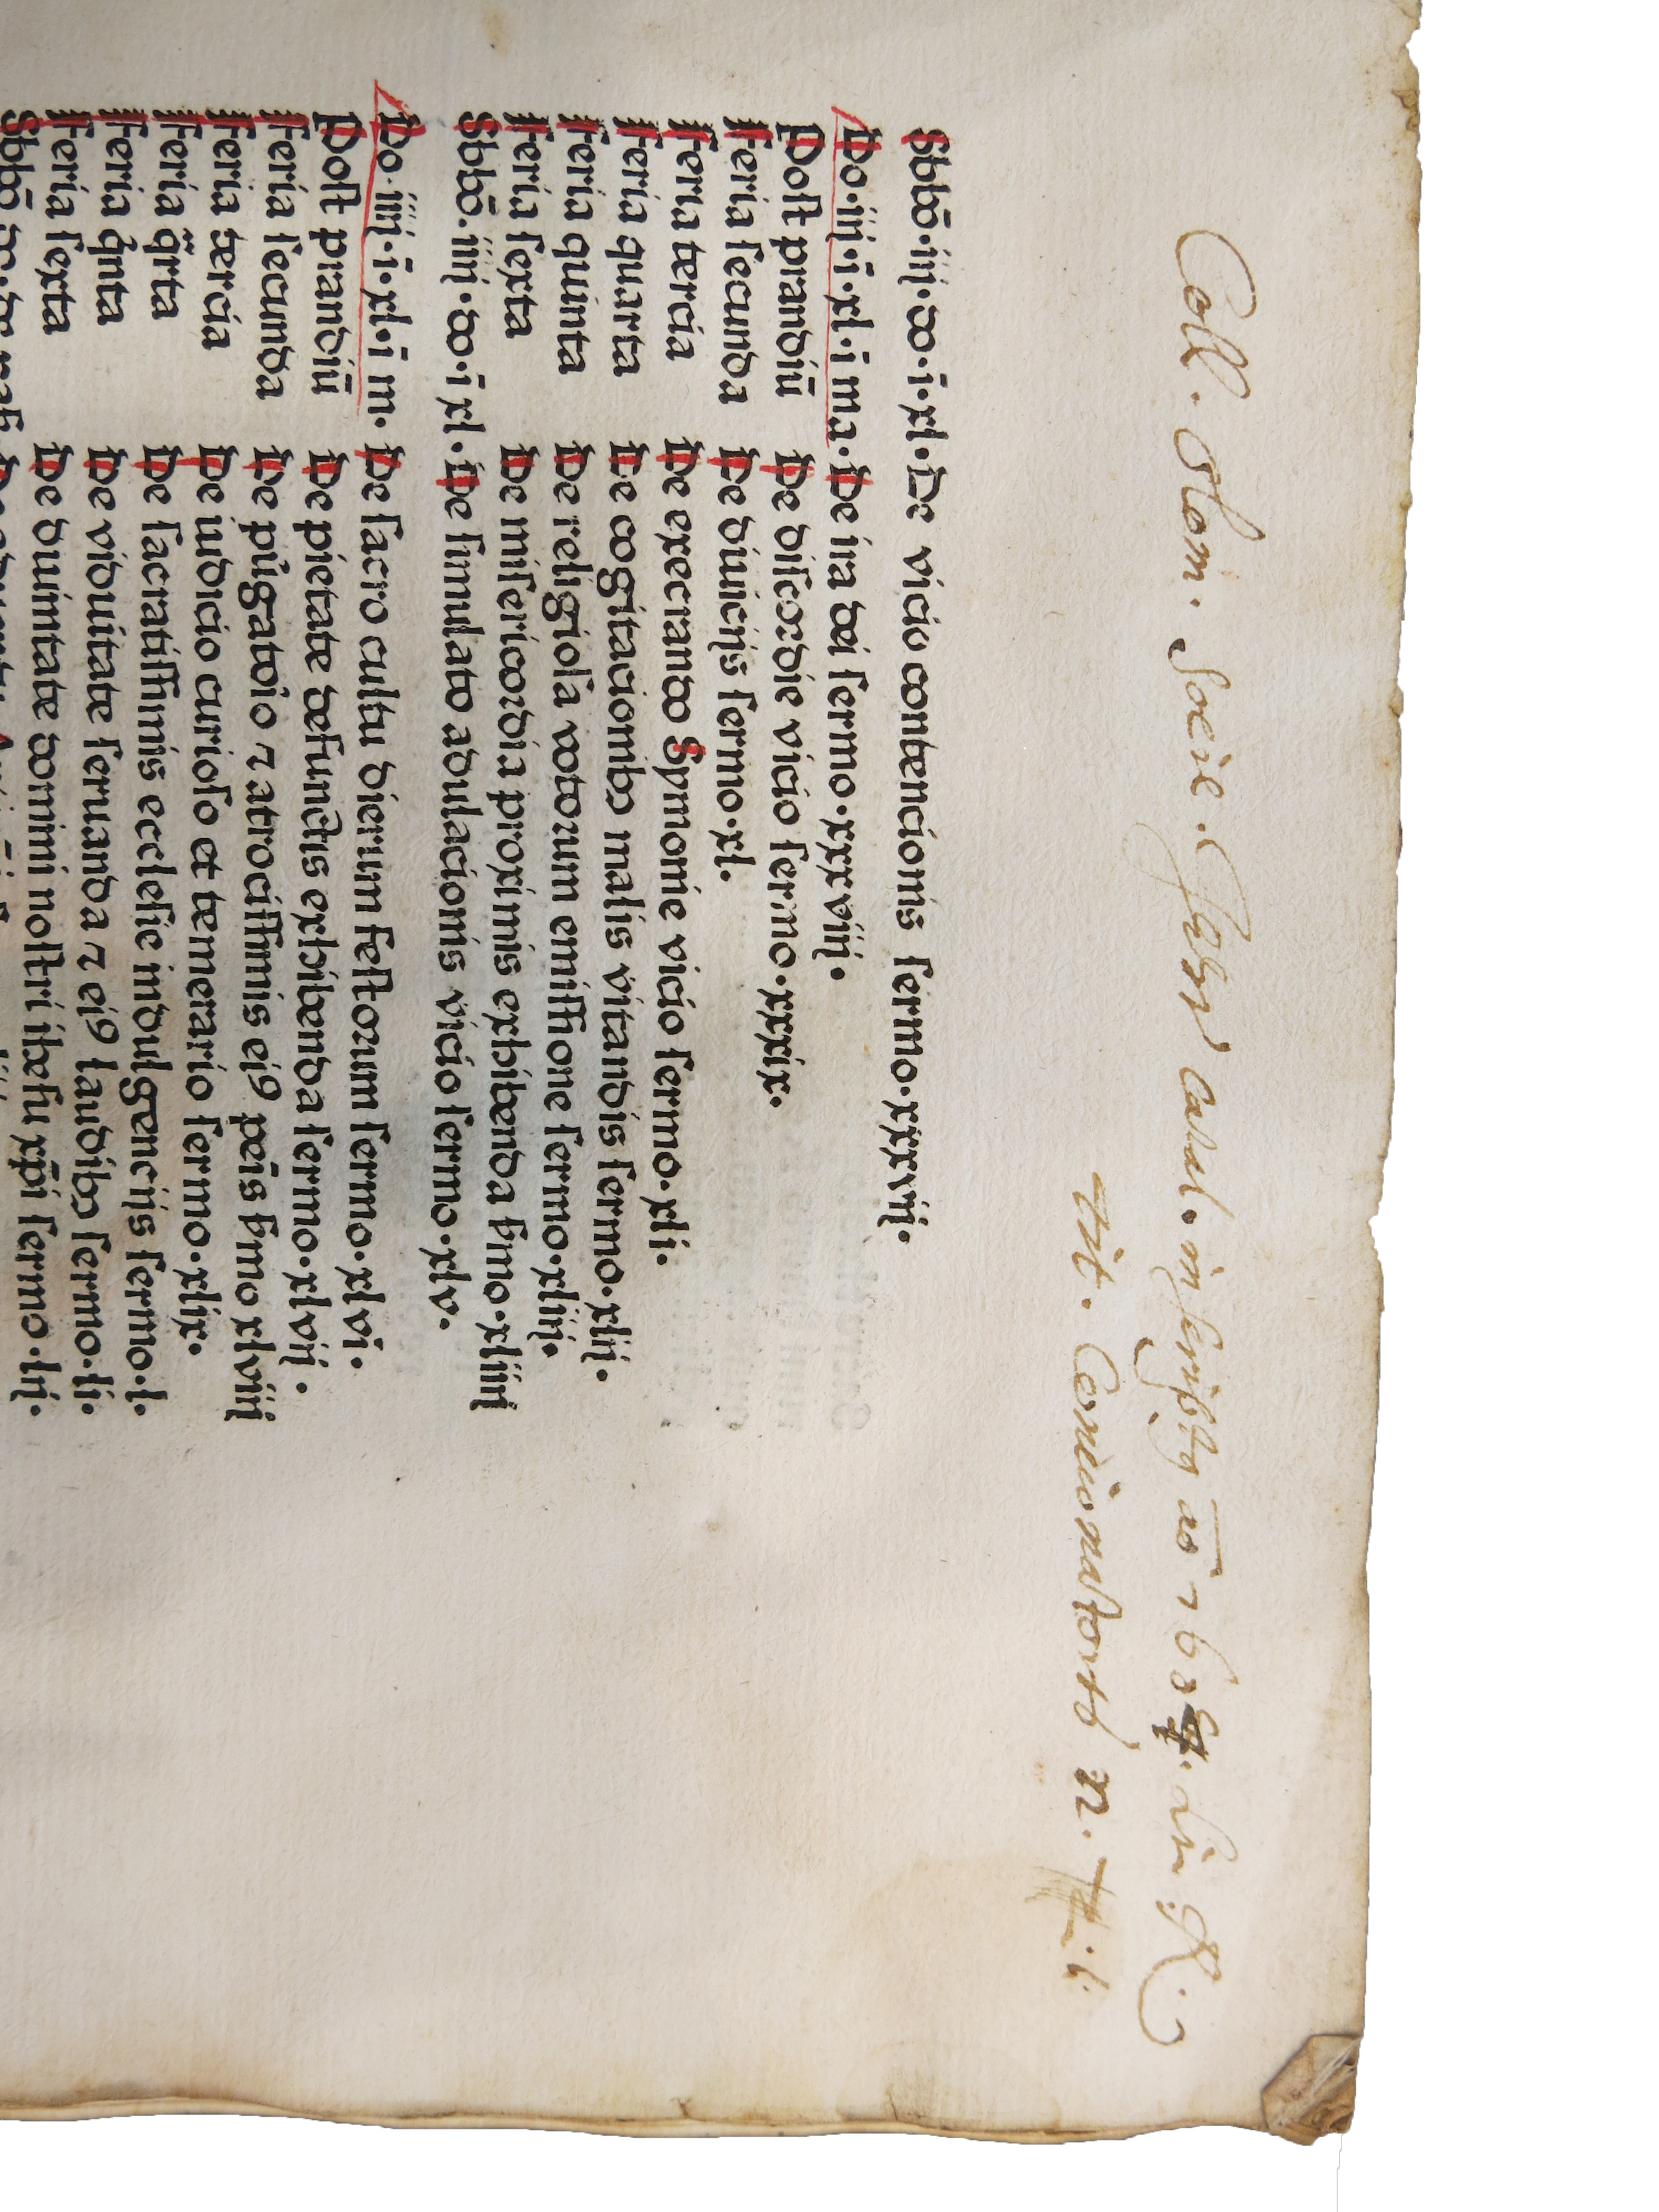 Coll. Olom. Socie. Jesu catal. inscriptq ao 1624. Lit. R.
tit. Concionatores n. 7. 6.
Sbbō·iij·do·ī·xl·De vicio contencionis sermo·xxxvij·
Do·iij·ī·xl·ī ma·De ira dei sermo·xxxviij·
Post prandiū De discordie vicio sermo·xxxix·
Feria secunda De diuicijs sermo·xl·
Feria tercia De execrando Symonie vicio sermo·xli·
Feria quarta De cogitacionibꝫ malis vitandis sermo·xlij·
Feria quinta De religiosa votorum emissione sermo·xliij·
Feria sexta De misericordia proximis exhibenda ẜmo·xliiij
Sbbō·iiij·do·ī xl·De simulato adulacionis vicio sermo·xlv·
Do·iiij·ī·xl·ī m·De sacro cultu dierum festorum sermo·xlvi·
Post prandiū De pietate defunctis exhibenda sermo·xlvij·
Feria secunda De pūgatōio ⁊ atrocissimis eiꝰ pēis ẜmo xlviij
Feria tercia De iudicio curioso et temerario sermo·xlix·
Feria q̄rta De sacratissimis ecclesie indulgencijs sermo·l·
Feria q̄nta De viduitate seruanda ⁊ eiꝰ laudibꝫ sermo·li·
Feria sexta De diuinitate domini nostri ihesu xp̄i sermo·lij·